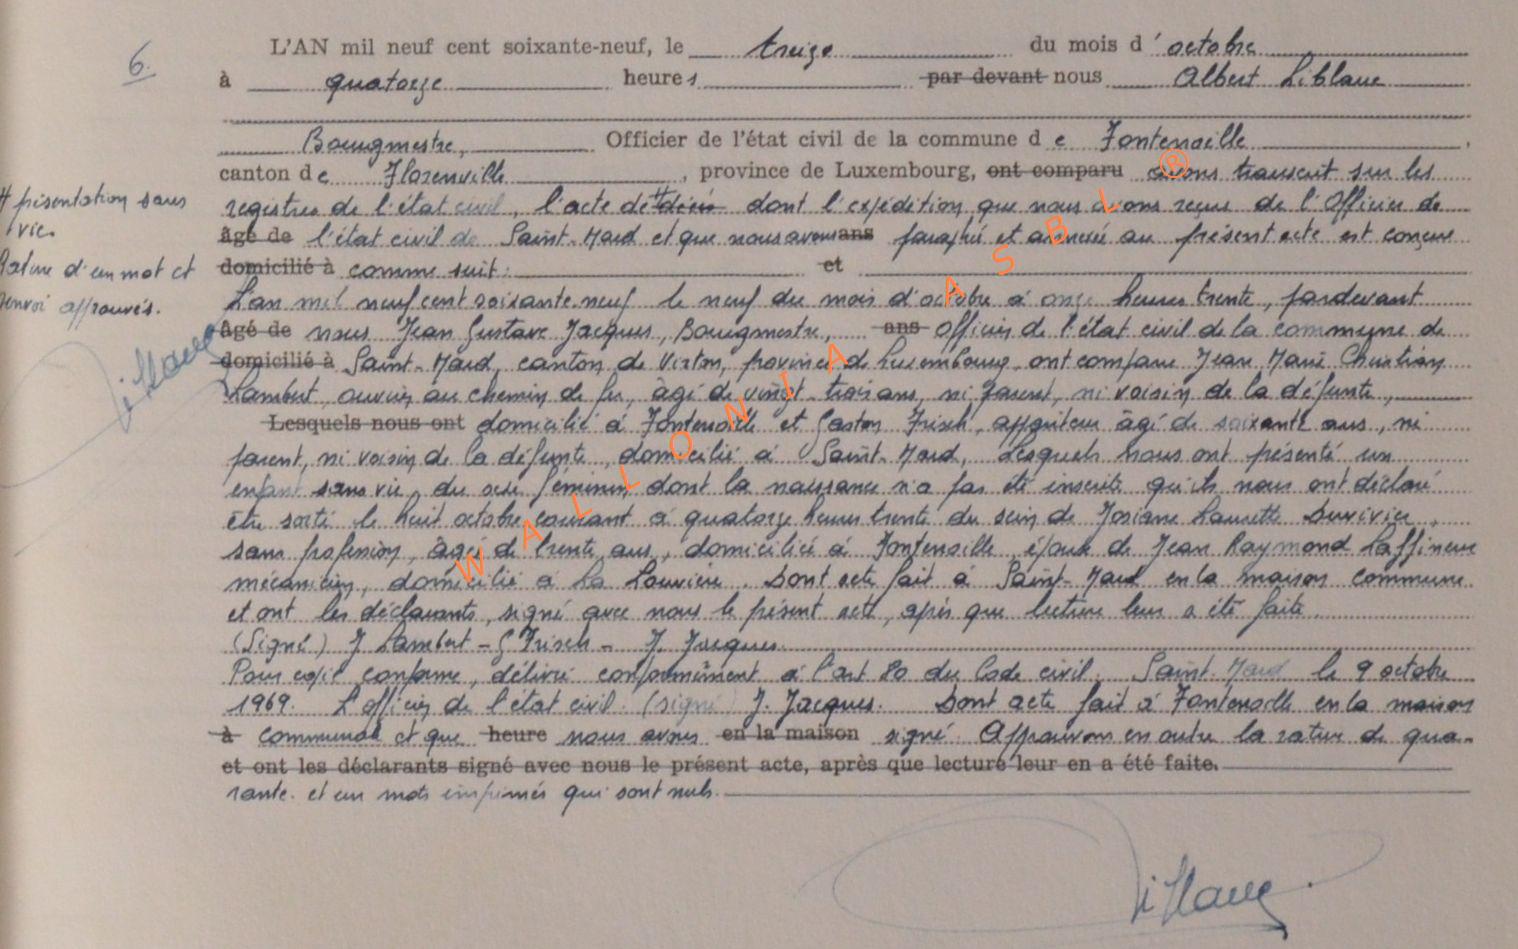 6.
L'AN mil neuf cent soixante-neuf, le treize du mois d'octobre
à quatorze heures par devant nous Albert Liblanc
Bourgmestre, Officier de l'état civil de la commune de Fontenoille,
canton de Florenville, province de Luxembourg, ont comparu avons transcrit sur les
registres de l'état civil, l'acte de # décès dont l'expédition que nous avons reçue de l'Officier de
âgé de l'état civil de Saint-Mard et que nous avons ans paraphé et annexé au présent acte est conçue
domicilié à comme suit : et
L'an mil neuf cent soixante-neuf le neuf du mois d'octobre à onze heures trente, pardevant
âgé de nous Jean Gustave Jacques, Bourgmestre, ans Officier de l'état civil de la commune de
domicilié à Saint-Mard, canton de Virton, province de Luxembourg, ont comparu Jean Marie Christian
Lambert, ouvrier au chemin de fer, âgé de vingt-trois ans, ni parent, ni voisin de la défunte,
Lesquels nous ont domicilié à Fontenoille et Gaston Frisch, appariteur âgé de soixante ans, ni
parent, ni voisin de la défunte, domicilié à Saint-Mard, lesquels nous ont présenté un
enfant sans vie, du sexe féminin, dont la naissance n'a pas été inscrite, qu'ils nous ont déclaré
être sorti le huit octobre courant à quatorze heures trente du sein de Josiane Laurette Duvivier,
sans profession, âgée de trente ans, domiciliée à Fontenoille, épouse de Jean Raymond Laffineur
mécanicien, domicilié à La Louvière. Dont acte fait à Saint-Mard en la maison commune
et ont les déclarants, signé avec nous le présent acte, après que lecture leur a été faite.
(Signé) J Lambert - G Frisch - J. Jacques.
Pour copie conforme, délivré conformément à l'art 80 du Code civil. Saint-Mard le 9 octobre
1969. L'officier de l'état civil. (signé) J. Jacques. Dont acte fait à Fontenoille en la maison
à communale et que heure nous avons en la maison signé. Approuvons en outre la rature de qua-
et ont les déclarants signé avec nous le présent acte, après que lecture leur en a été faite.
rante et un mots imprimés qui sont nuls.
# présentation sans
vie.
Rature d'un mot et
renvoi approuvés.
Liblanc
Liblanc
WALLONIA ASBL ®